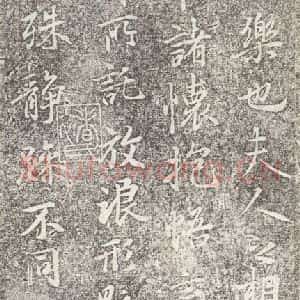 樂也夫人之相
諸懷抱悟言
所託放浪形骸
殊靜躁不同